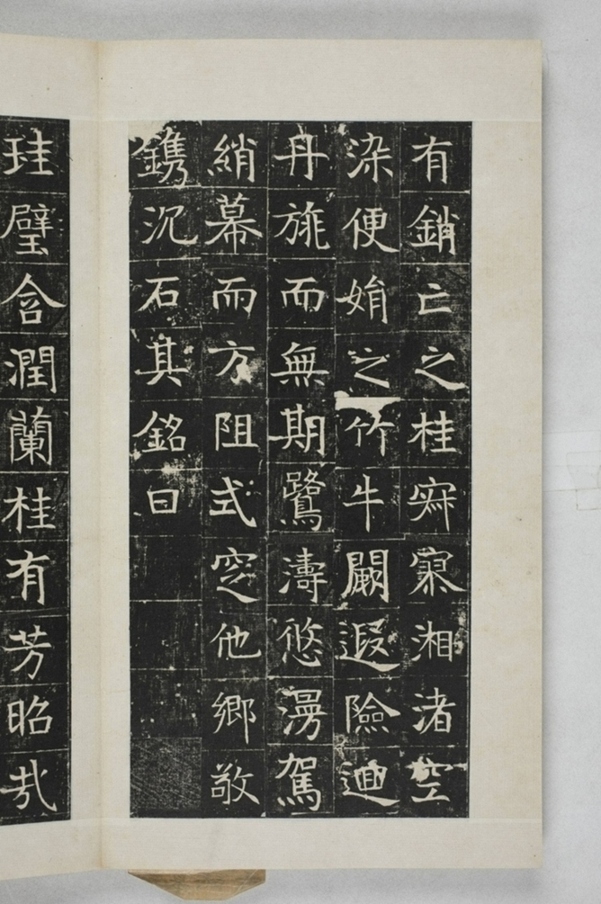 有銷亡之桂寂寞湘渚空
染便娟之竹牛闕遐險迴
丹旐而無期鷺濤悠漫駕
綃幕而方阻式窆他鄉敬
鐫沉石其銘曰
珪璧含潤蘭桂有芳昭哉